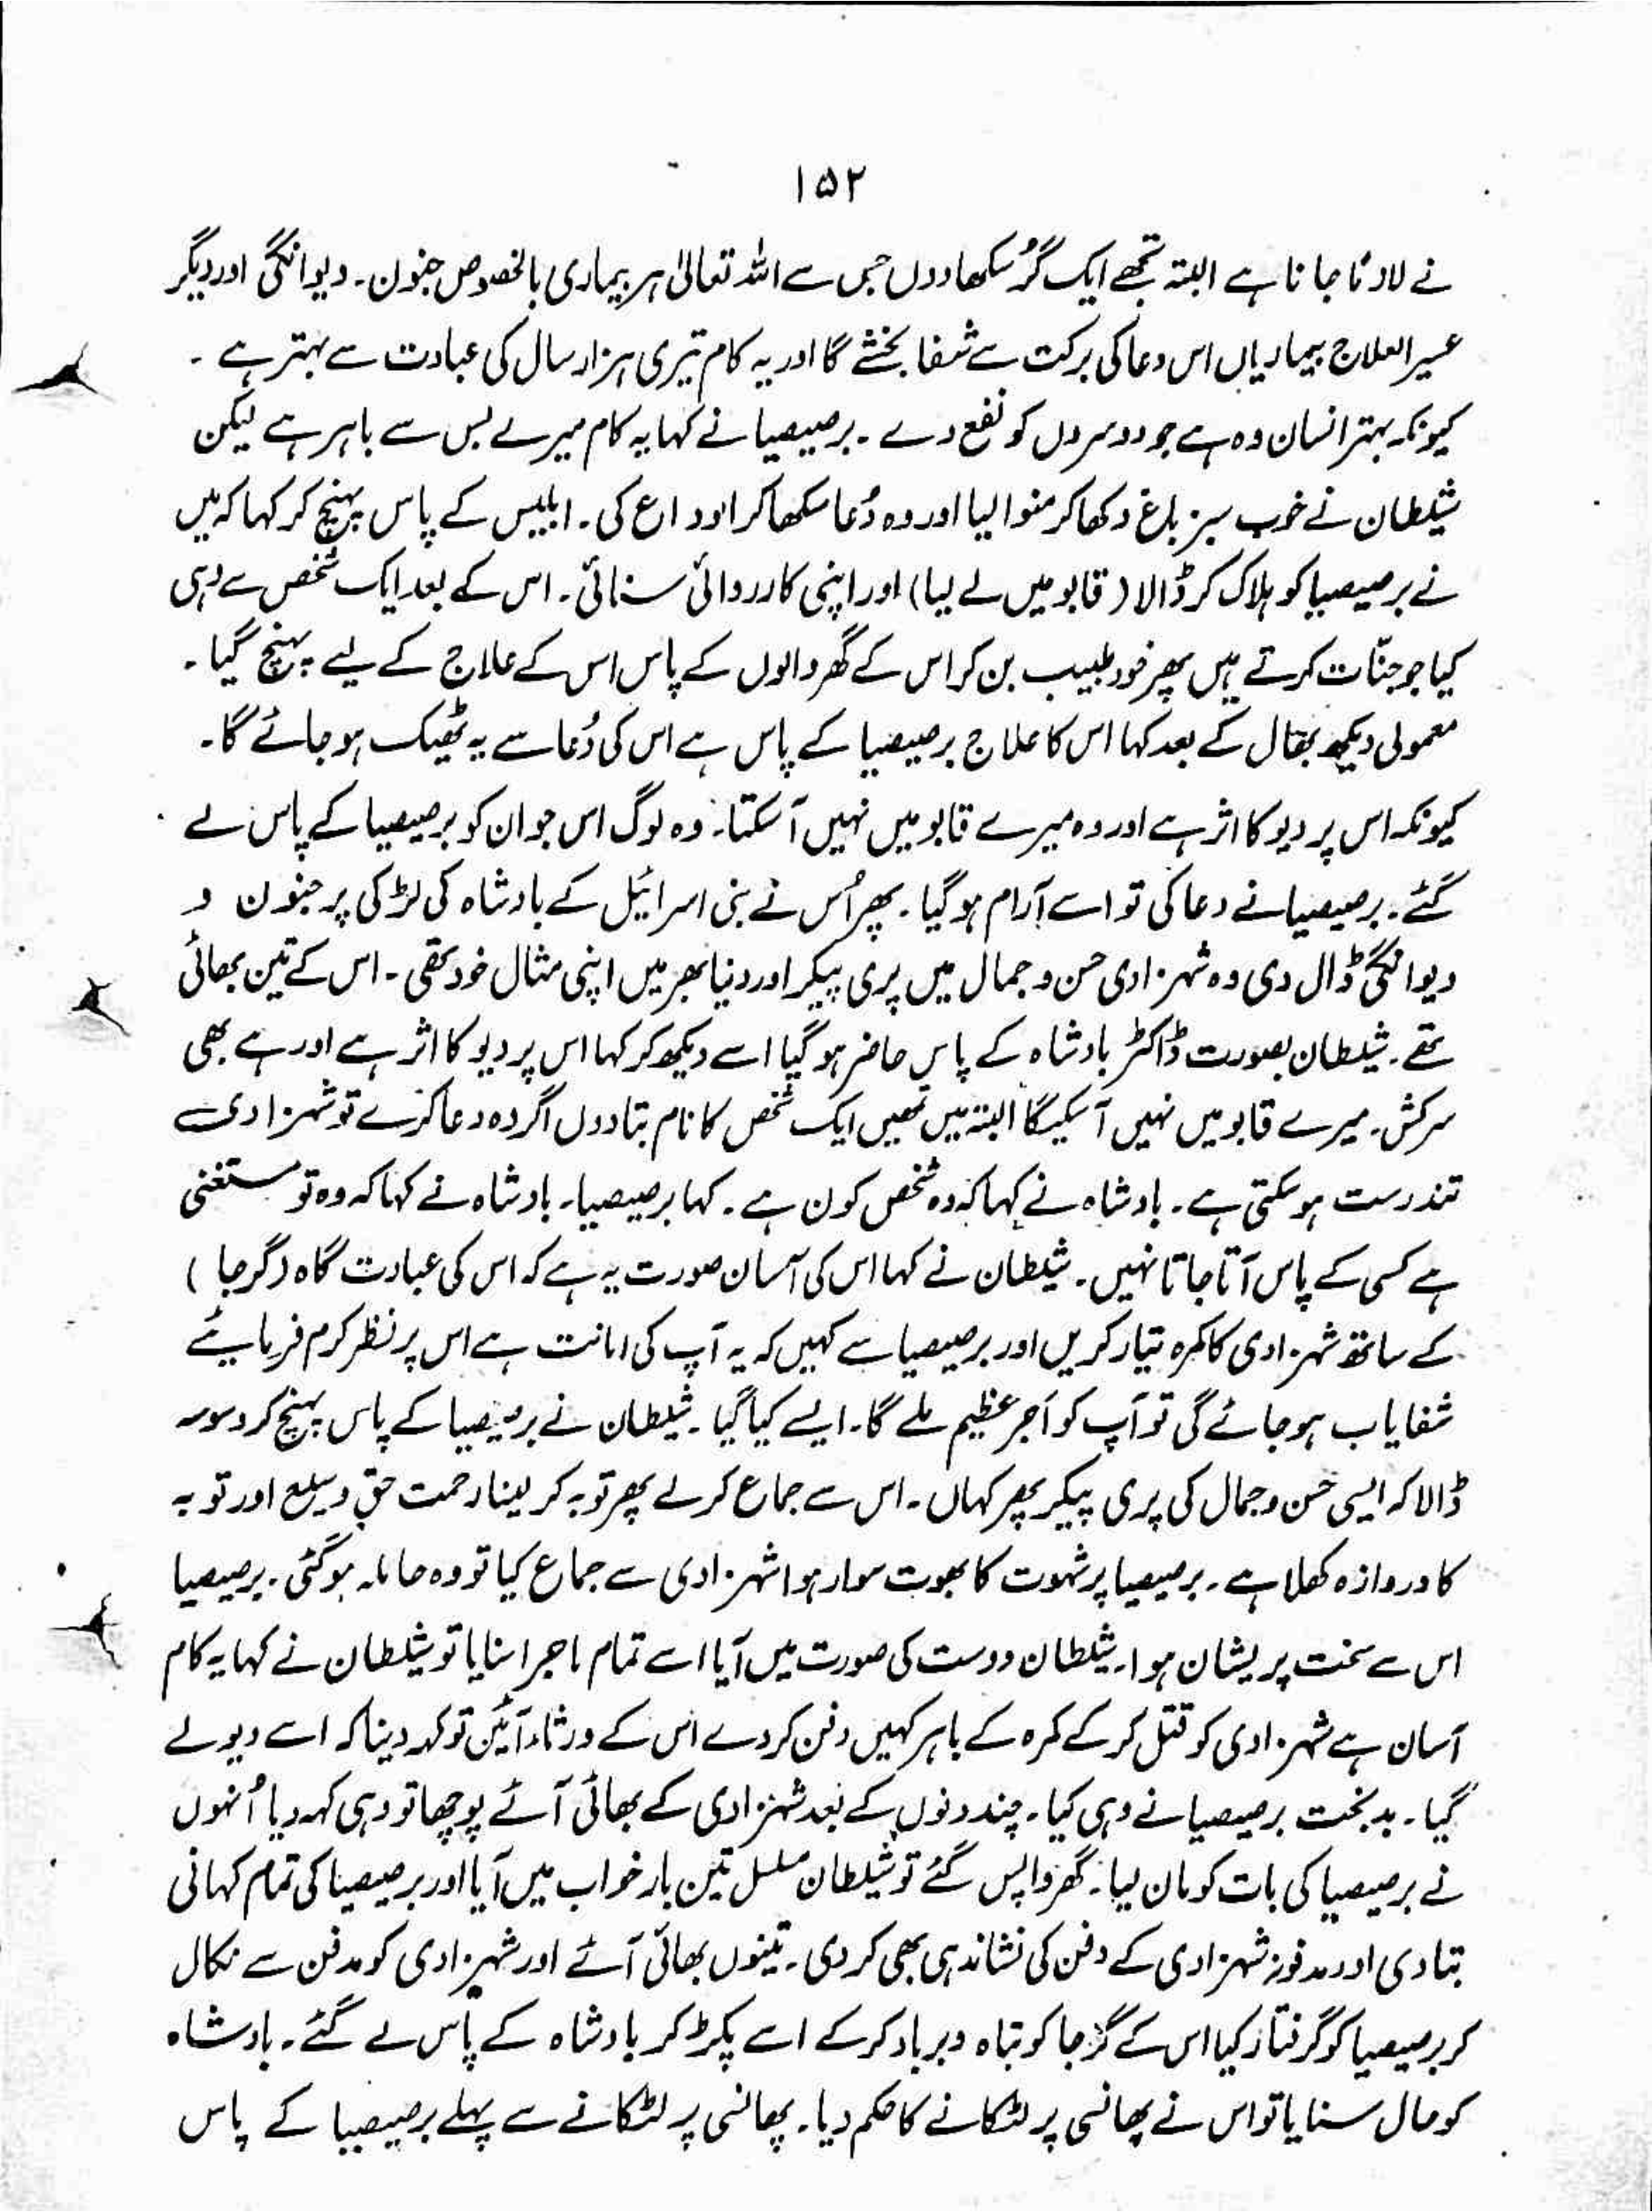 ۱۵۲
نے لازماً جانا ہے البتہ تجھے ایک گُر سکھا دوں جس سے اللہ تعالیٰ ہر بیماری بالخصوص جنون۔ دیوانگی اور دیگر
عسیر العلاج بیماریاں اس دعا کی برکت سے شفا بخشے گا اور یہ کام تیری ہزار سال کی عبادت سے بہتر ہے ۔
کیونکہ بہتر انسان وہ ہے جو دوسروں کو نفع دے ۔ برصیصیا نے کہا یہ کام میرے بس سے باہر ہے لیکن
شیطان نے خوب سبز باغ دکھا کر منوا لیا اور وہ دُعا سکھا کر الوداع کی ۔ ابلیس کے پاس پہنچ کر کہا کہ میں
نے برصیصیا کو ہلاک کر ڈالا (قابو میں لے لیا) اور اپنی کارروائی سنائی ۔ اس کے بعد ایک شخص سے وہی
کیا جو جنّات کرتے ہیں پھر خود طبیب بن کر اس کے گھر والوں کے پاس اس کے علاج کے لیے پہنچ گیا ۔
معمولی دیکھ بھال کے بعد کہا اس کا علاج برصیصیا کے پاس ہے اس کی دُعا سے یہ ٹھیک ہو جائے گا۔
کیونکہ اس پر دیو کا اثر ہے اور وہ میرے قابو میں نہیں آ سکتا۔ وہ لوگ اس جوان کو برصیصیا کے پاس لے
گئے ۔ برصیصیا نے دعا کی تو اسے آرام ہو گیا ۔ پھر اُس نے بنی اسرائیل کے بادشاہ کی لڑکی پر جنون و
دیوانگی ڈال دی وہ شہزادی حسن و جمال میں پری پیکر اور دنیا بھر میں اپنی مثال خود تھی ۔ اس کے تین بھائی
تھے ۔ شیطان بصورت ڈاکٹر بادشاہ کے پاس حاضر ہو گیا اسے دیکھ کر کہا اس پر دیو کا اثر ہے اور ہے بھی
سرکش۔ میرے قابو میں نہیں آ سکیگا البتہ میں تمھیں ایک شخص کا نام بتا دوں اگر وہ دعا کرے تو شہزادی
تندرست ہو سکتی ہے ۔ بادشاہ نے کہا کہ وہ شخص کون ہے ۔ کہا برصیصیا۔ بادشاہ نے کہا کہ وہ تو مستغنی
ہے کسی کے پاس آتا جاتا نہیں ۔ شیطان نے کہا اس کی آسان صورت یہ ہے کہ اس کی عبادت گاہ (گرجا )
کے ساتھ شہزادی کا کمرہ تیار کریں اور برصیصیا سے کہیں کہ یہ آپ کی امانت ہے اس پر نظر کرم فرمایئے
شفایاب ہو جائے گی تو آپ کو اَجر عظیم ملے گا۔ ایسے کیا گیا ۔ شیطان نے برصیصیا کے پاس پہنچ کر وسوسہ
ڈالا کہ ایسی حسن و جمال کی پری پیکر پھر کہاں ۔ اس سے جماع کر لے پھر توبہ کر لینا رحمت حق وسیع اور توبہ
کا دروازہ کھلا ہے ۔ برصیصیا پر شہوت کا بھوت سوار ہوا شہزادی سے جماع کیا تو وہ حاملہ ہو گئی ۔ برصیصیا
اس سے سخت پریشان ہوا۔ شیطان دوست کی صورت میں آیا اسے تمام ماجرا سنایا تو شیطان نے کہا یہ کام
آسان ہے شہزادی کو قتل کر کے کمرہ کے باہر کہیں دفن کر دے اس کے ورثاء آئیں تو کہہ دینا کہ اسے دیو لے
گیا ۔ بدبخت برصیصیا نے وہی کیا ۔ چند دنوں کے بعد شہزادی کے بھائی آئے پوچھا تو وہی کہہ دیا اُنہوں
نے برصیصیا کی بات کو مان لیا ۔ گھر واپس گئے تو شیطان مسلسل تین بار خواب میں آیا اور برصیصیا کی تمام کہانی
بتا دی اور مدفونہ شہزادی کے دفن کی نشاندہی بھی کر دی ۔ تینوں بھائی آئے اور شہزادی کو مدفن سے نکال
کر برصیصیا کو گرفتار کیا اس کے گرجا کو تباہ و برباد کر کے اسے پکڑ کر بادشاہ کے پاس لے گئے ۔ بادشاہ
کو حال سنایا تو اس نے پھانسی پر لٹکانے کا حکم دیا ۔ پھانسی پر لٹکانے سے پہلے برصیصیا کے پاس